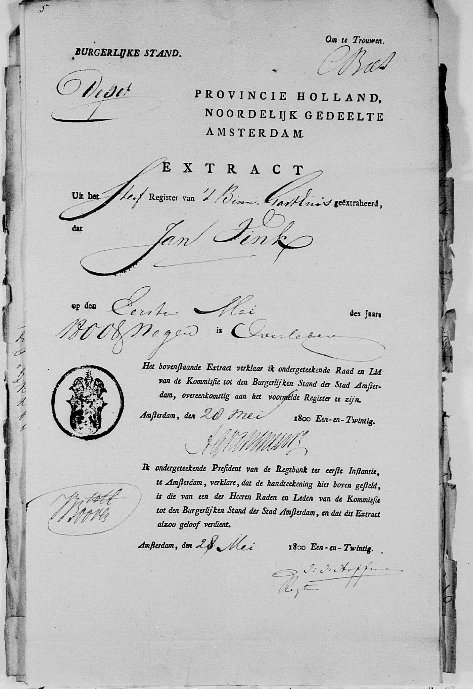 5
Om te Trouwen.
BURGERLIJKE STAND.
PROVINCIE HOLLAND,
NOORDELIJK GEDEELTE
AMSTERDAM.
EXTRACT
Uit het Sterf Register van 't Binnen Gasthuis geëxtraheerd,
dat
Jan Fink
op den Eerste Mei des Jaars
1800 & Negen is Overleden
Het bovenstaande Extract verklaar ik ondergeteekende Raad en Lid
van de Kommissie tot den Burgerlijken Stand der Stad Amster-
dam, overeenkomstig aan het voormelde Register te zijn.
Amsterdam, den 28 Mei 1800 Een-en-Twintig.
Ik ondergeteekende President van de Regtbank ter eerste Instantie,
te Amsterdam, verklare, dat de handteekening hier boven gesteld,
is die van een der Heeren Raden en Leden van de Kommissie
tot den Burgerlijken Stand der Stad Amsterdam, en dat dit Extract
alzoo geloof verdient.
Amsterdam, den 28 Mei 1800 Een-en-Twintig.